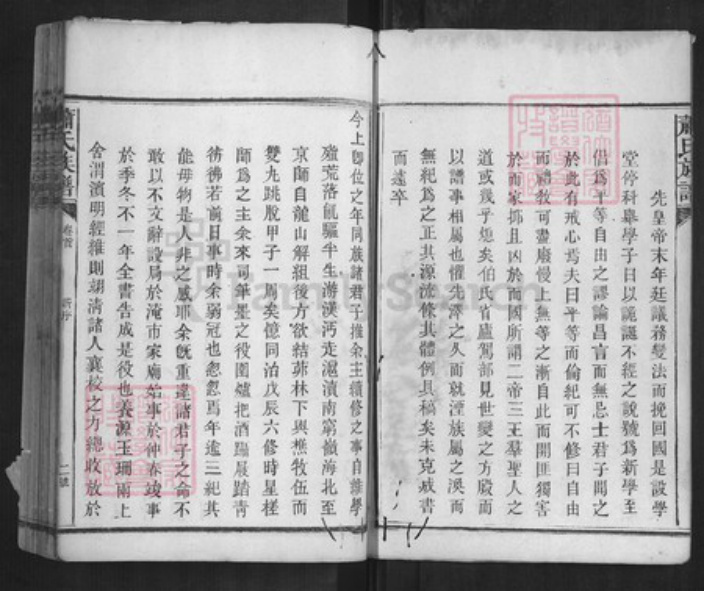 蕭氏族譜
先皇帝末年廷議務變法而挽回國是設學
堂停科舉學子日以詭誕不經之說號爲新學至
倡爲平等自由之謬論昌言而無忌士君子聞之
於此有戒心焉夫曰平等而倫紀可不修曰自由
而禮教可盡廢慢上無等之漸自此而開匪獨害
於而家抑且凶於而國所謂二帝三王羣聖人之
道或幾乎熄矣伯氏省廬駕部見世變之方殷而
以譜事相屬也懼先澤之久而就湮族屬之渙而
無紀爲之正其源流條其體例具稿矣未克成書
而遽卒
今上卽位之年同族諸君子推余主續修之事自維學
殖荒落飢驅半生游漢沔走滬瀆南窮嶺海北至
京師自龍山解組後方欲結茆林下與樵牧伍而
雙丸跳脫甲子一周矣億同治戊辰六修時星槎
師爲之主余來司筆墨之役圍爐把酒躡屐踏青
彷彿若前日事時余弱冠也忽忽焉年逾三紀其
能毋物是人非之感耶余旣重違諸君子之命不
敢以不文辭設局於淹市家廟始事於仲春竣事
於季冬不一年全書告成是役也義源玉珊兩上
舍渭濱明經維則翊淸諸人襄校之力總收放於
蕭氏族譜
卷首
新序
二號
FamilySearch